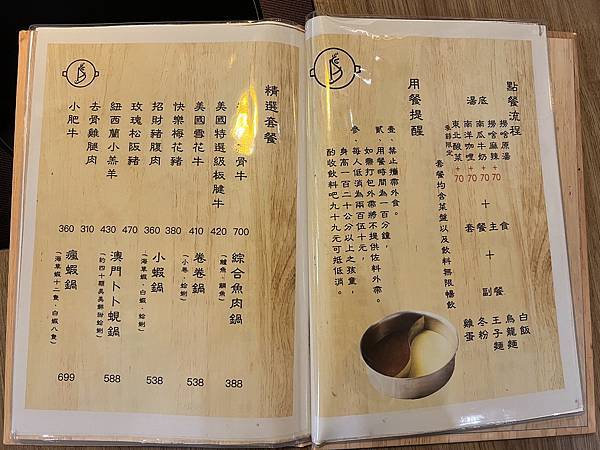 點餐流程
湯底
撈啥原湯
撈啥麻辣+70
南瓜牛奶+70
南洋咖哩+70
東北酸菜+70
季節限定
+
套餐主食
+
副餐
白飯
烏龍麵
王子麵
冬粉
雞蛋
套餐均含菜盤以及飲料無限暢飲
用餐提醒
壹、禁止攜帶外食。
貳、用餐時間為一百分鐘，
如需打包外帶將不提供佐料外帶。
參、每人低消為兩百五十元，
身高一百二十公分以上之孩童，
酌收飲料吧九十九元可抵低消。
精選套餐
骨牛 700
美國特選級板腱牛 420
美國雪花牛 410
快樂梅花豬 380
招財豬腹肉 360
玫瑰松阪豬 470
紐西蘭小羔羊 430
去骨雞腿肉 310
小肥牛 360
綜合魚肉鍋 388
(鱸魚、鯛魚)
卷卷鍋 538
(小卷、蛤蜊)
小蝦鍋 538
(海草蝦、白蝦、蛤蜊)
澳門卜卜蜆鍋 588
(約四十顆美美鮮甜蛤蜊)
瘋蝦鍋 699
(海草蝦十二隻、白蝦八隻)